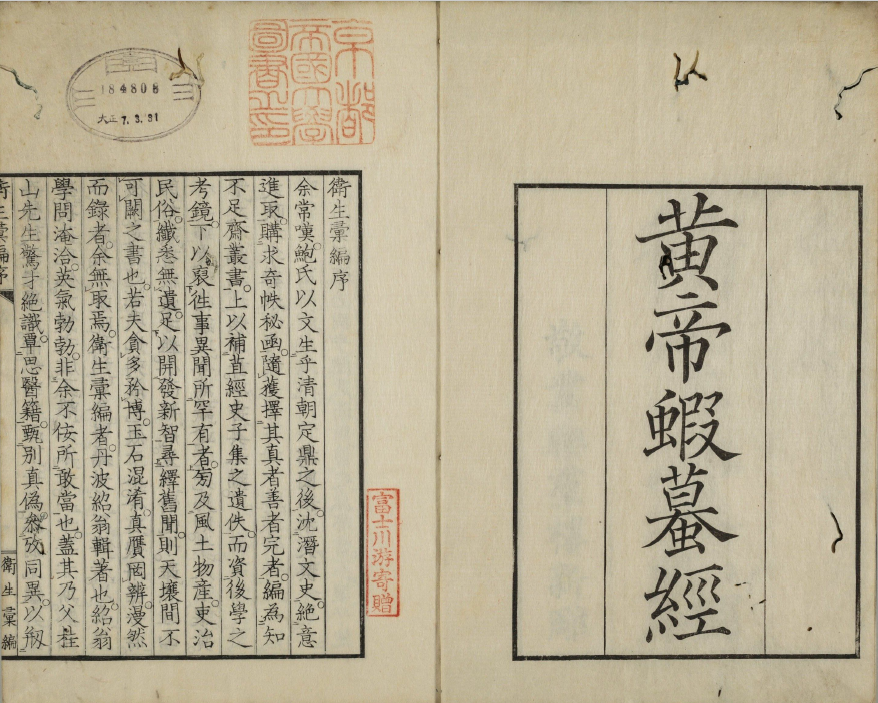 黄帝蝦蟇經
京都
帝國大學
圖書之印
184808
大正 7.3.31
富士川游寄贈
衛生彙編序
余常嘆鮑氏以文生乎清朝定鼎之後沈潛文史絶意
進取。購求奇帙秘函。隨獲擇其真者善者完者。編為知
不足齋叢書。上以補苴經史子集之遺佚。而資後學之
考鏡。下以裒徃事異聞所罕有者。旁及風土物產吏治
民俗。纎悉無遺。足以開發新智。尋繹舊聞。則天壤間不
可闕之書也。若夫貪多矜博。玉石混淆。真贋罔辨。漫然
而錄者。余無取焉。衛生彙編者。丹波紹翁輯著也。紹翁
學問淹洽。英氣勃勃。非余不佞所敢當也。蓋其乃父桂
山先生驚才絶識。覃思醫籍。甄別真偽。叅攷同異。以剏
衛生彙編序
衛生彙編